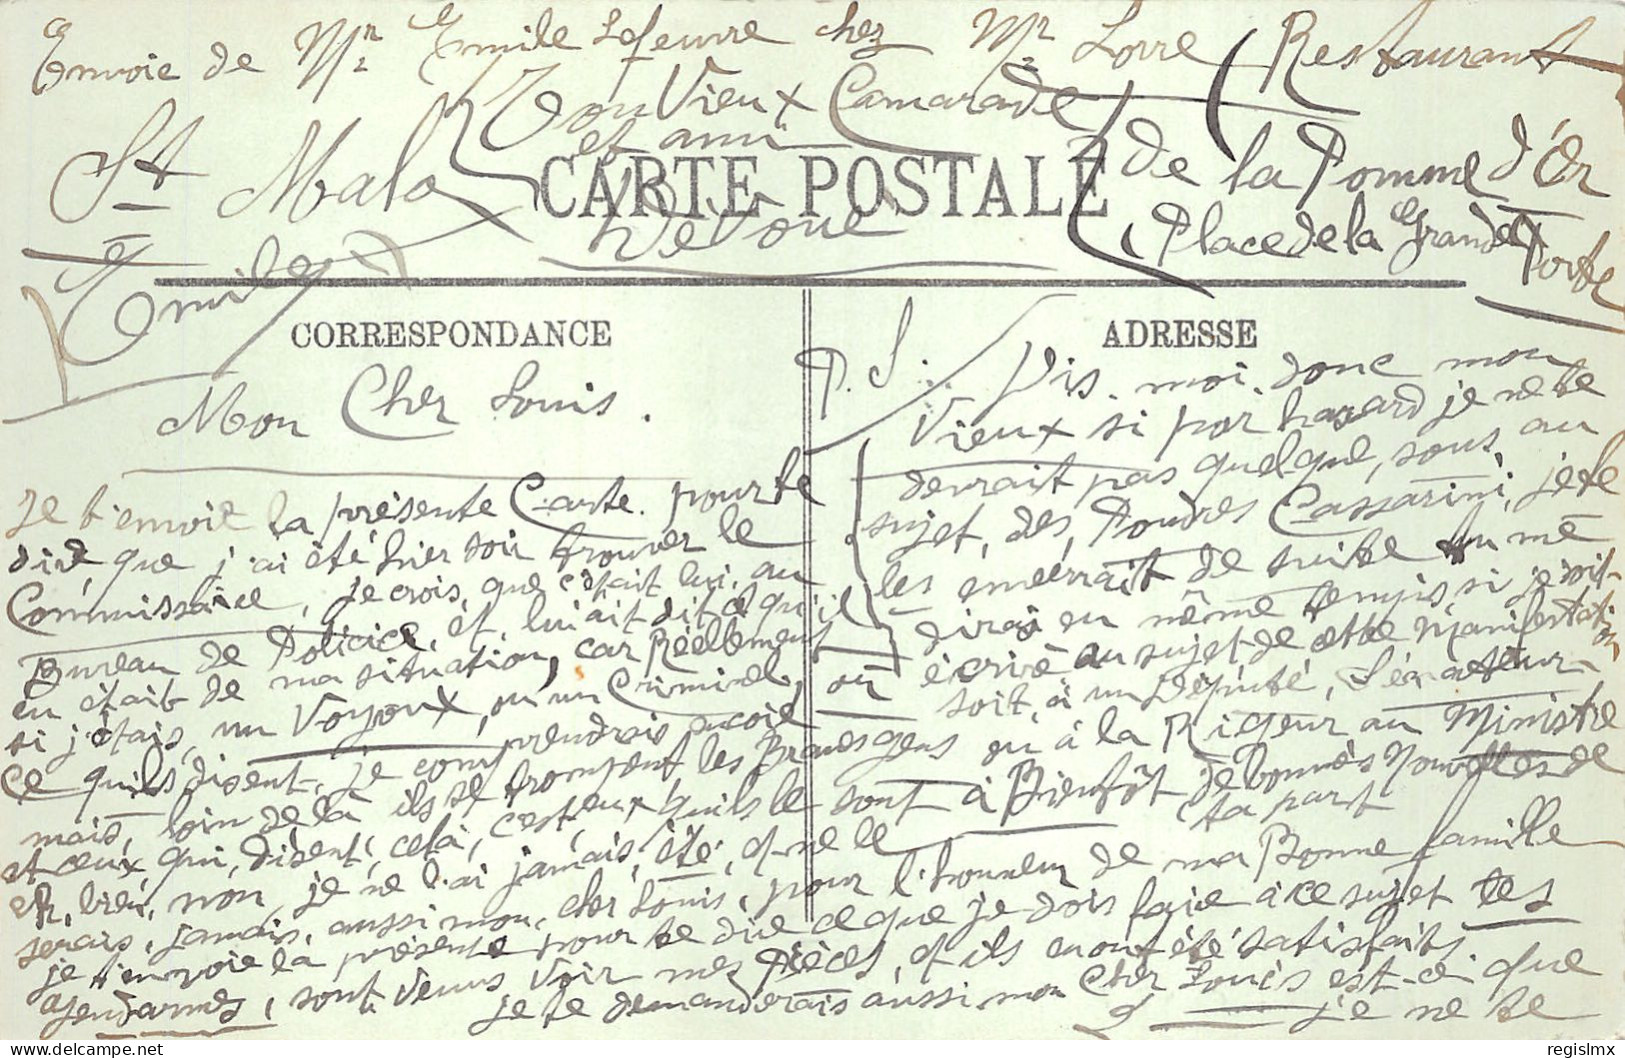 Envoie de Mr Emile Lefeuvre chez Mr Lorre Restaurant
de la Pomme d'Or
Place de la Grande Porte
St Malo
Ton Vieux Camarade
et ami
Dévoué
Emile
CARTE POSTALE
CORRESPONDANCE
ADRESSE
Mon Cher Louis.
Je t'envoie la présente Carte. pour te
dire, que j'ai été hier soir trouver le
Commissaire, je crois, que c'était lui, au
Bureau de Policice, et, lui ait dit ce qu'il
en était de ma situation, car Réellement
si j'étais, un Voyoux, ou un Criminel,
ce qu'ils disent, je comprendrais encoie
mais, loin de là ils se trompent les Braves gens
et ceux qui, disent, celà, c'est eux qu'ils le sont
eh, bien, non, je ne l'ai jamais, été, et ne le
serais, jamais, aussi mon, cher Louis, pour l'honneur de ma Bonne famille
je t'envoie la présente pour te die ce que je dois faie à ce sujet les
gendarmes, sont Venus Voir mes Pièces, et ils en ont été satisfaits
je te demanderais aussi mon Cher Louis est-ce que
je ne te
P. S. Dis. moi. donc mon
Vieux si par hazard je ne te
devrait pas quelque, sous au
sujet, des, Poudres Cassarini, je te
les enverrait de suite tu me
dirais en même temps si je doit
écrire au sujet de cette Manifestation
soit, à un Député, Sénateur
ou à la Rigeur au Ministre
à Bientôt de bonnes Nouvelles de
ta part
regislmx